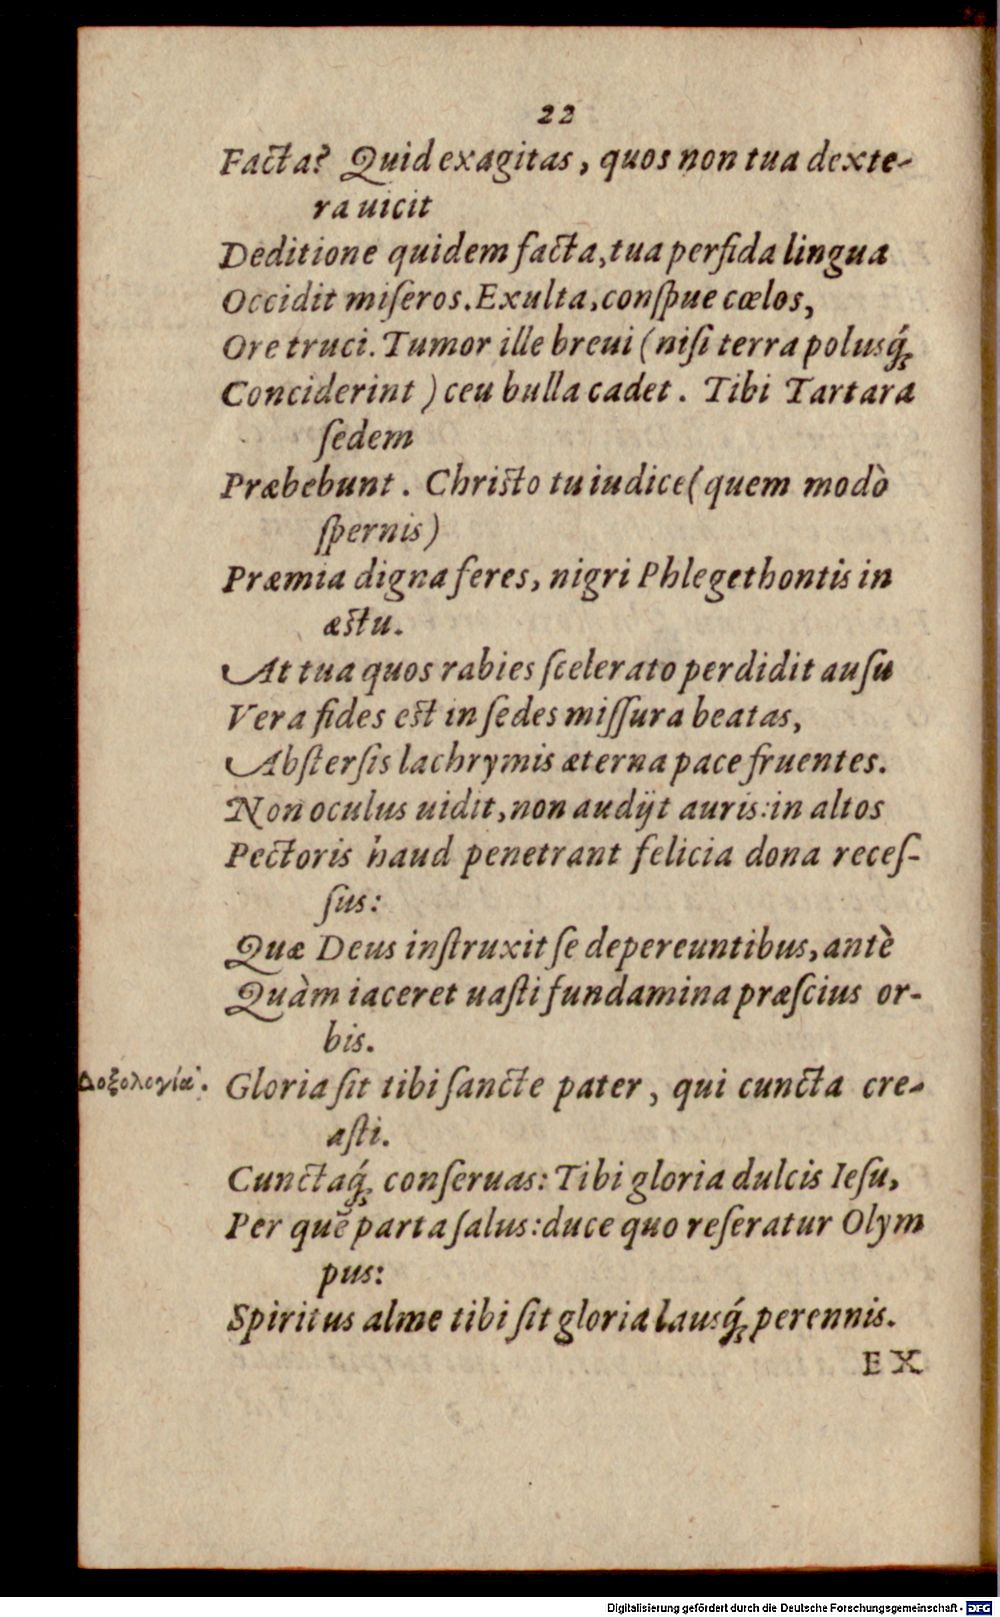 22
Facta? Quid exagitas, quos non tua dexte-
ra uicit
Deditione quidem facta, tua perfida lingua
Occidit miſeros. Exulta, conſpue cœlos,
Ore truci. Tumor ille breui (niſi terra polusq́;
Conciderint) ceu bulla cadet. Tibi Tartara
ſedem
Præbebunt. Chriſto tu iudice (quem modò
ſpernis)
Præmia digna feres, nigri Phlegethontis in
æſtu.
At tua quos rabies ſcelerato perdidit auſu
Vera fides eſt in ſedes miſſura beatas,
Abſterſis lachrymis æterna pace fruentes.
Non oculus uidit, non audijt auris: in altos
Pectoris haud penetrant felicia dona receſ-
ſus:
Quæ Deus inſtruxit ſe depereuntibus, antè
Quàm iaceret uaſti fundamina præſcius or-
bis.
Δοξολογία. Gloria ſit tibi ſancte pater, qui cuncta cre-
aſti.
Cunctaq́; conſeruas: Tibi gloria dulcis Ieſu,
Per quē parta ſalus: duce quo reſeratur Olym
pus:
Spiritus alme tibi ſit gloria lausq́; perennis.
EX
Digitalisierung gefördert durch die Deutsche Forschungsgemeinschaft - DFG